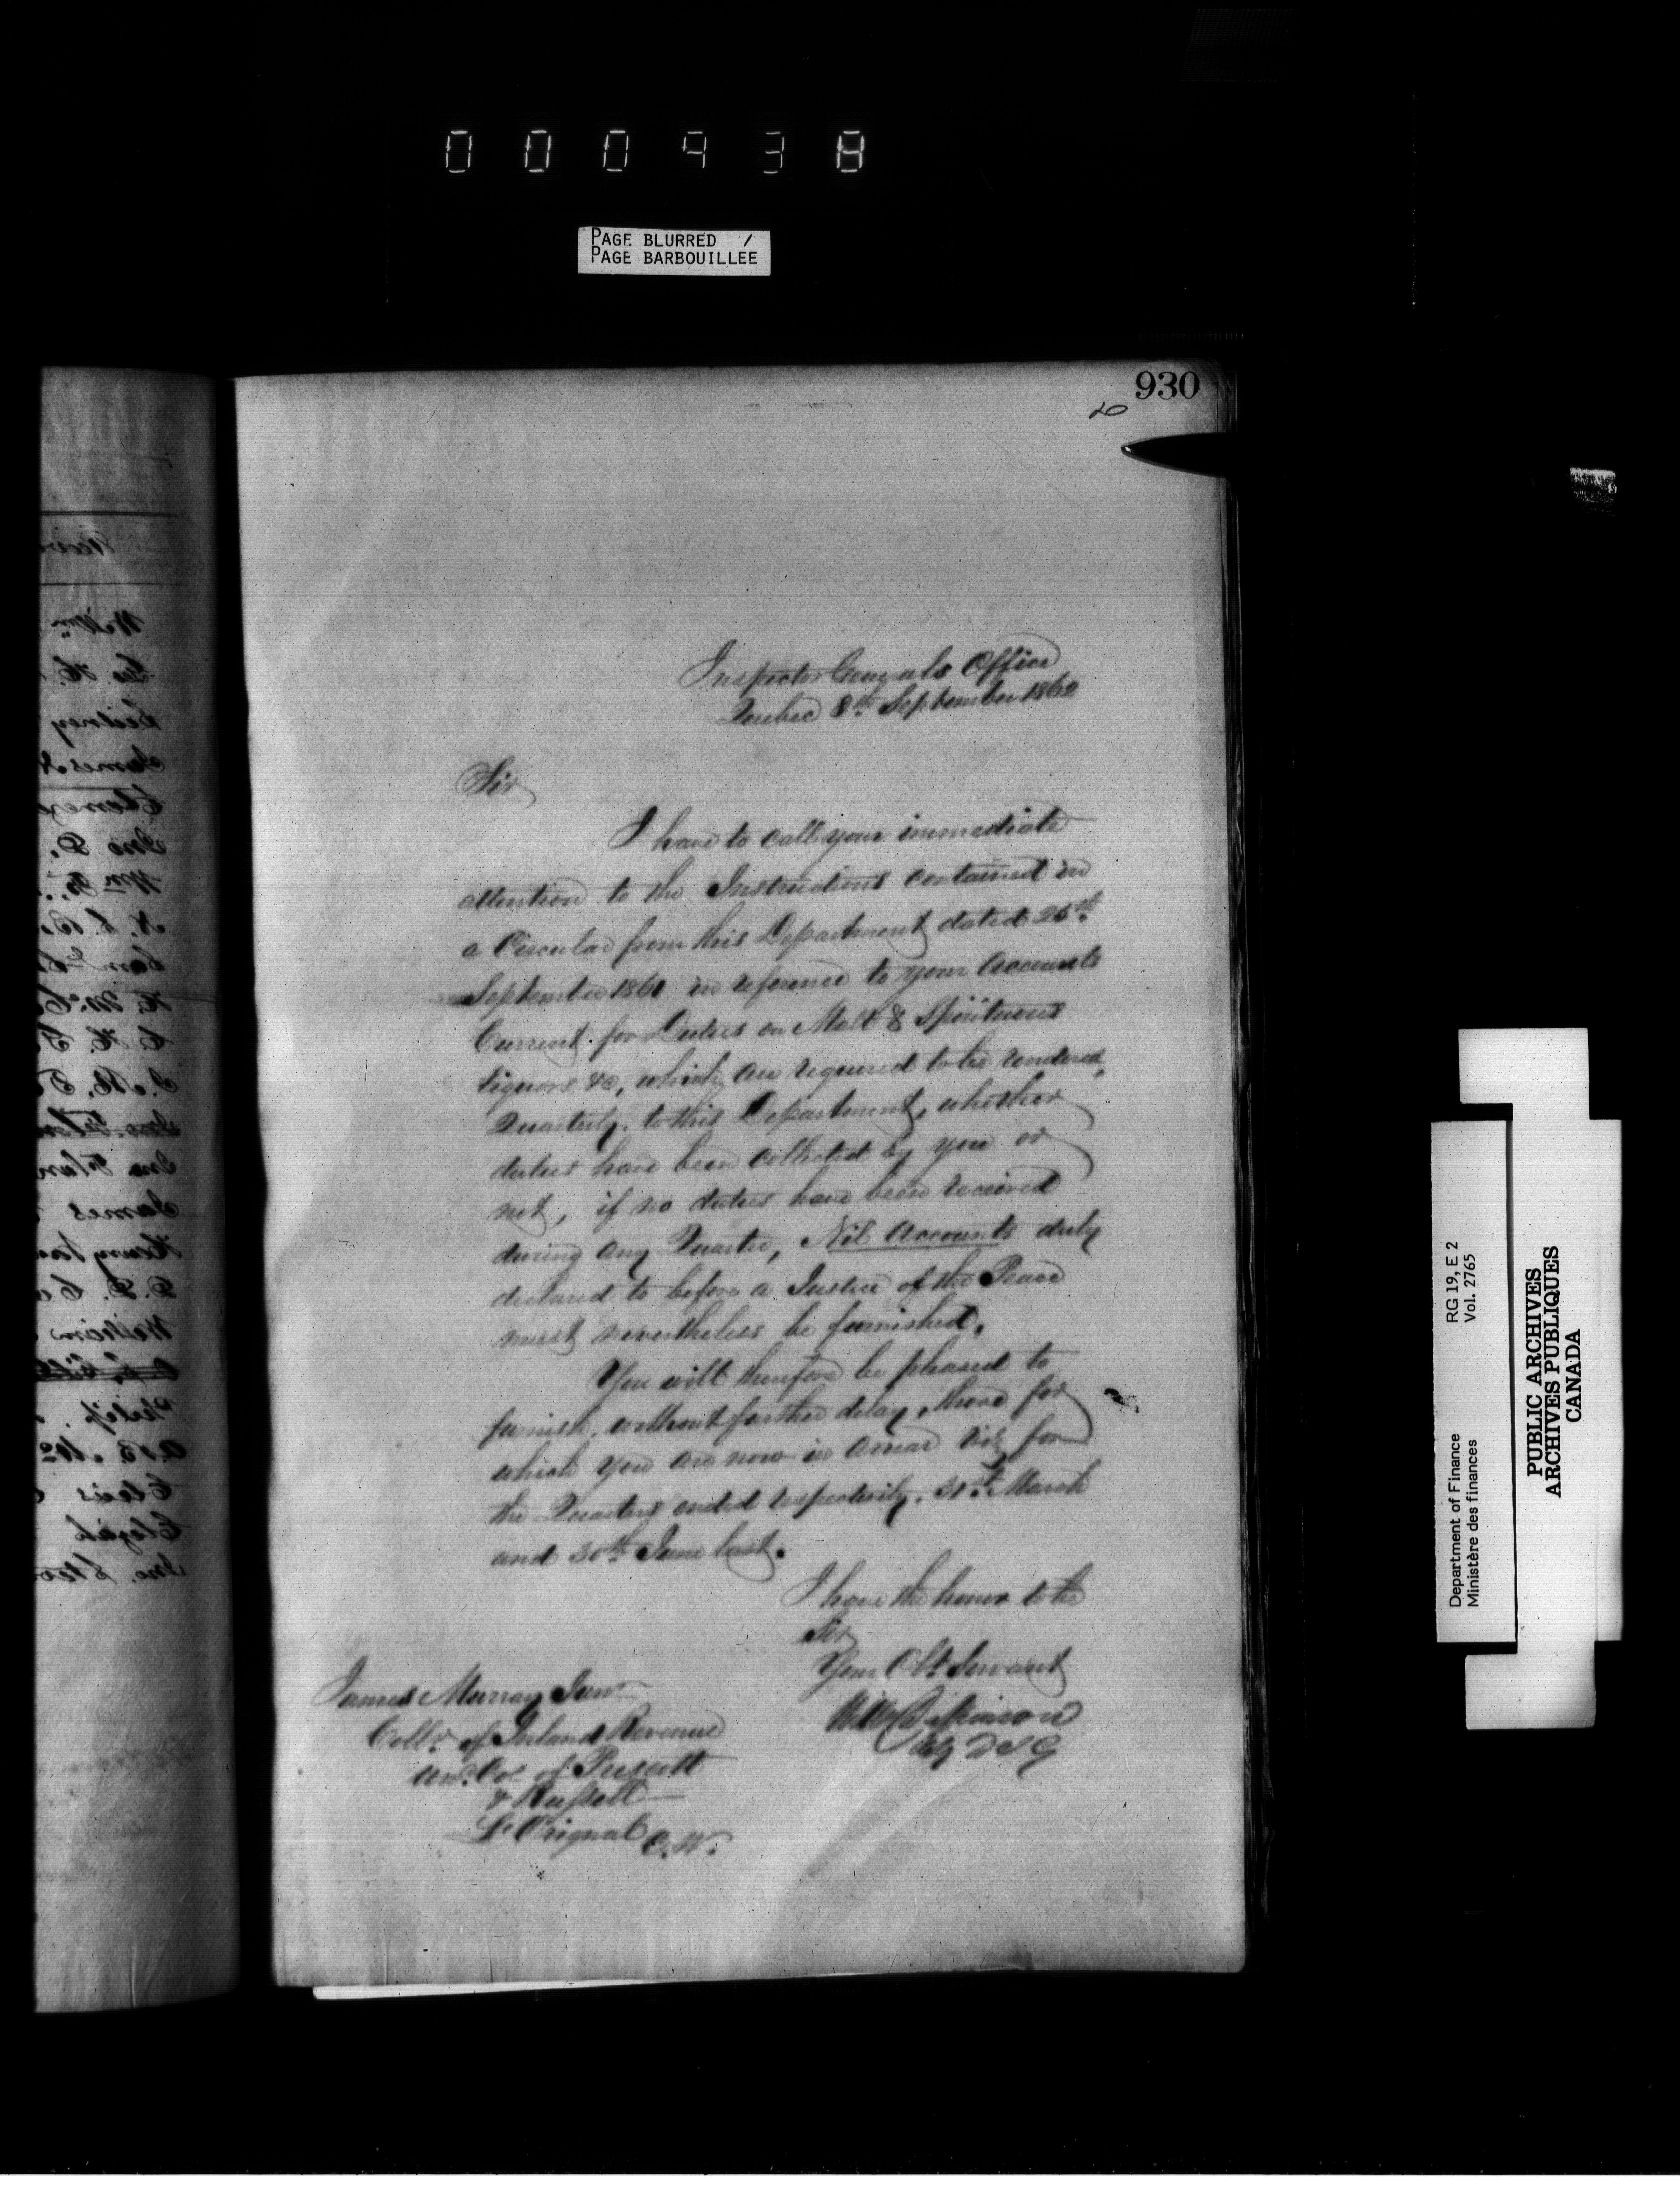 PAGE BLURRED /
PAGE BARBOUILLEE
930
Inspector Generals Office
Quebec 8th September 1862
Sir
I have to call your immediate
attention to the Instructions contained in
a Circular from this Department dated 25th
September 1861 in reference to your Accounts
Current for Duties on Malt & Spirituous
liquors &c, which are required to be rendered,
Quarterly, to this Department, whether
duties have been collected by you or
not, if no duties have been received
during any Quarter, Nil Accounts duly
declared to before a Justice of the Peace
must nevertheless be furnished.
You will therefore be pleased to
furnish, without further delay, those for
which you are now in arrear viz for
the Quarters ended respectively, 31st March
and 30th June last.
I have the honor to be
Sir
Your Obt Servant
Wm Dickinson
D I G
James Murray Junr
Collr of Inland Revenue
Und. Cos of Prescott
& Russell
L'Orignal C.W.
Department of Finance RG 19, E 2
Ministère des finances Vol. 2765
PUBLIC ARCHIVES
ARCHIVES PUBLIQUES
CANADA